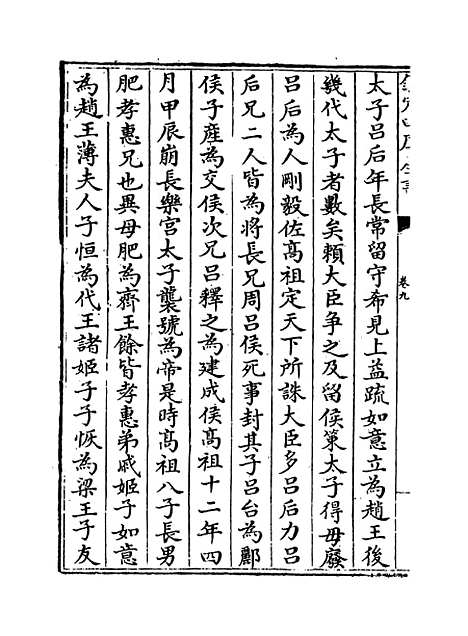 欽定四庫全書
卷九
太子呂后年長常留守希見上益疏如意立為趙王後
幾代太子者數矣賴大臣争之及留侯策太子得毋廢
呂后為人剛毅佐髙祖定天下所誅大臣多呂后力呂
后兄二人皆為將長兄周呂侯死事封其子呂台為酈
侯子産為交侯次兄呂釋之為建成侯髙祖十二年四
月甲辰崩長樂宫太子襲號為帝是時髙祖八子長男
肥孝惠兄也異母肥為齊王餘皆孝惠弟戚姬子如意
為趙王薄夫人子恒為代王諸姬子子恢為梁王子友